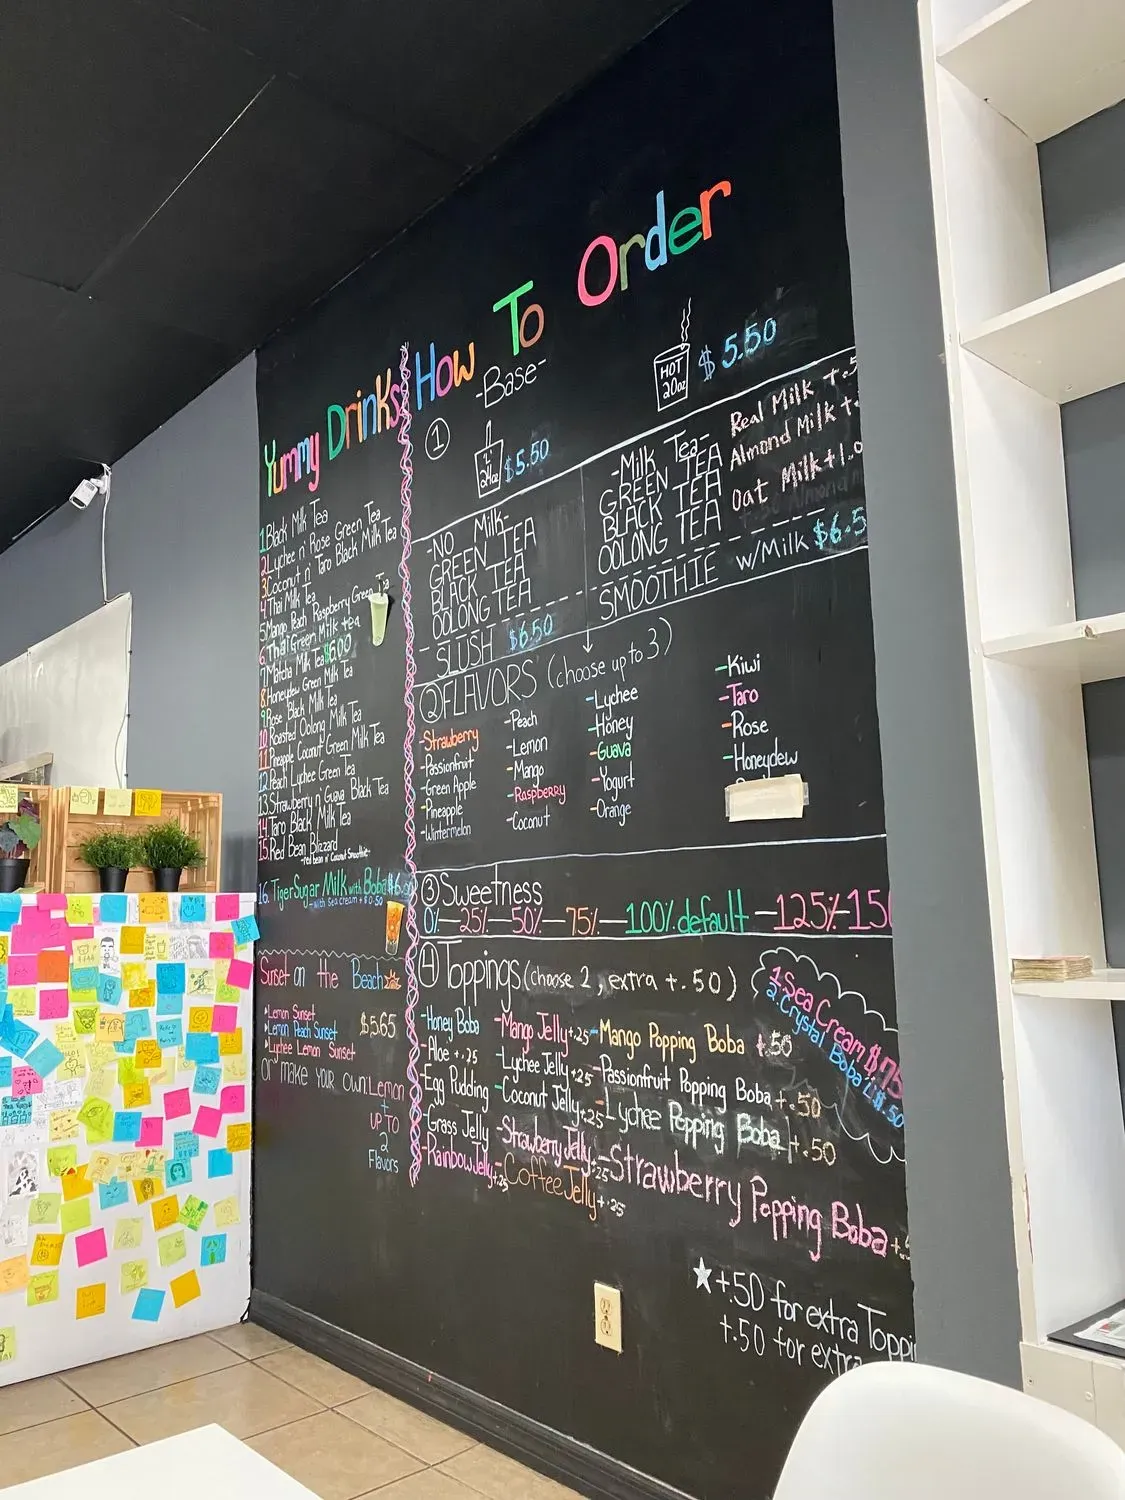 Yummy Drinks
1 Black Milk Tea
2 Lychee n' Rose Green Tea
3 Coconut n' Taro Black Milk Tea
4 Thai Milk Tea
5 Mango Peach Raspberry Green Tea
6. Thai Green Milk tea
7 Matcha Milk Tea $6.00
8. Honeydew Green Milk Tea
9 Rose Black Milk Tea
10 Roasted Oolong Milk Tea
11 Pineapple Coconut Green Milk Tea
12 Peach Lychee Green Tea
13 Strawberry n' Guava Black Tea
14 Taro Black Milk Tea
15. Red Bean Blizzard
-red bean n' Coconut Smoothie-
16. Tiger Sugar Milk with Boba
-with Sea cream +$0.50
Sunset on the Beach
Lemon Sunset
Lemon Peach Sunset $5.65
Lychee Lemon Sunset
Or make your own: Lemon
+
up TO
2
Flavors
How To Order
1 -Base-
24oz $5.50
HOT
20oz $5.50
-NO Milk-
GREEN TEA
BLACK TEA
OOLONG TEA
-SLUSH $6.50
-Milk Tea-
GREEN TEA
BLACK TEA
OOLONG TEA
Real Milk +.5
Almond Milk +.
Oat Milk +1.0
SMOOTHIE w/Milk $6.5
2 FLAVORS (choose up to 3)
-Strawberry
-Passionfruit
-Green Apple
-Pineapple
-Wintermelon
-Peach
-Lemon
-Mango
-Raspberry
-Coconut
-Lychee
-Honey
-Guava
-Yogurt
-Orange
-Kiwi
-Taro
-Rose
-Honeydew
3 Sweetness
0%-25%-50%-75%-100% default-125%-150
4 Toppings (choose 2, extra +.50)
-Honey Boba
-Aloe +.25
-Egg Pudding
-Grass Jelly
-Rainbow Jelly +.25
-Mango Jelly +.25
-Lychee Jelly +.25
-Coconut Jelly +.25
-Strawberry Jelly +.25
-Coffee Jelly +.25
-Mango Popping Boba +.50
-Passionfruit Popping Boba +.50
-Lychee Popping Boba +.50
-Strawberry Popping Boba +.5
1 Sea Cream $.75
2 Crystal Boba $.50
+.50 for extra Toppi
+.50 for extra